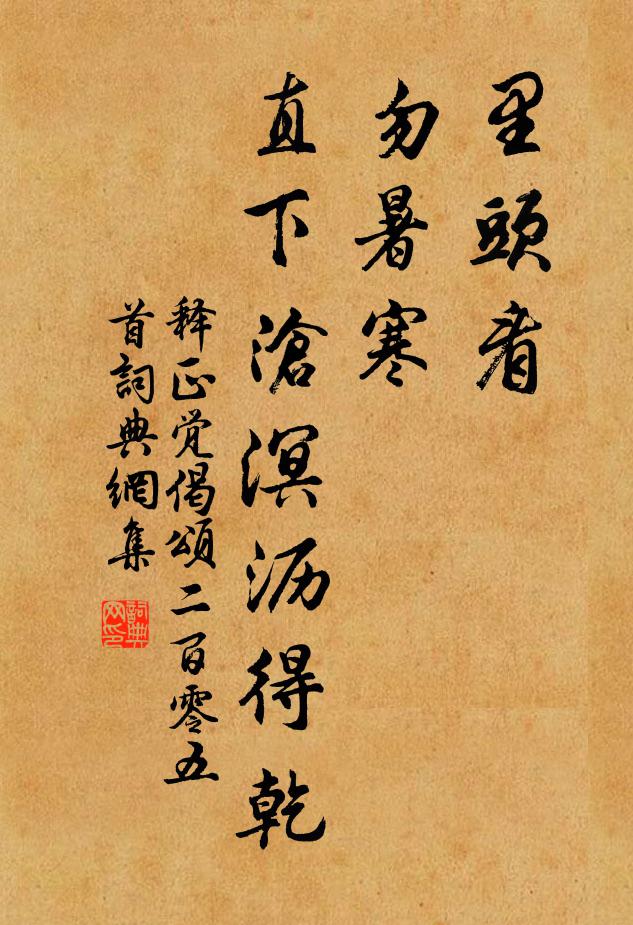 里頭看
勿暑寒
直下滄溟沥得乾
释正觉偈頌二百零五
首詞典網集
詞典
网印